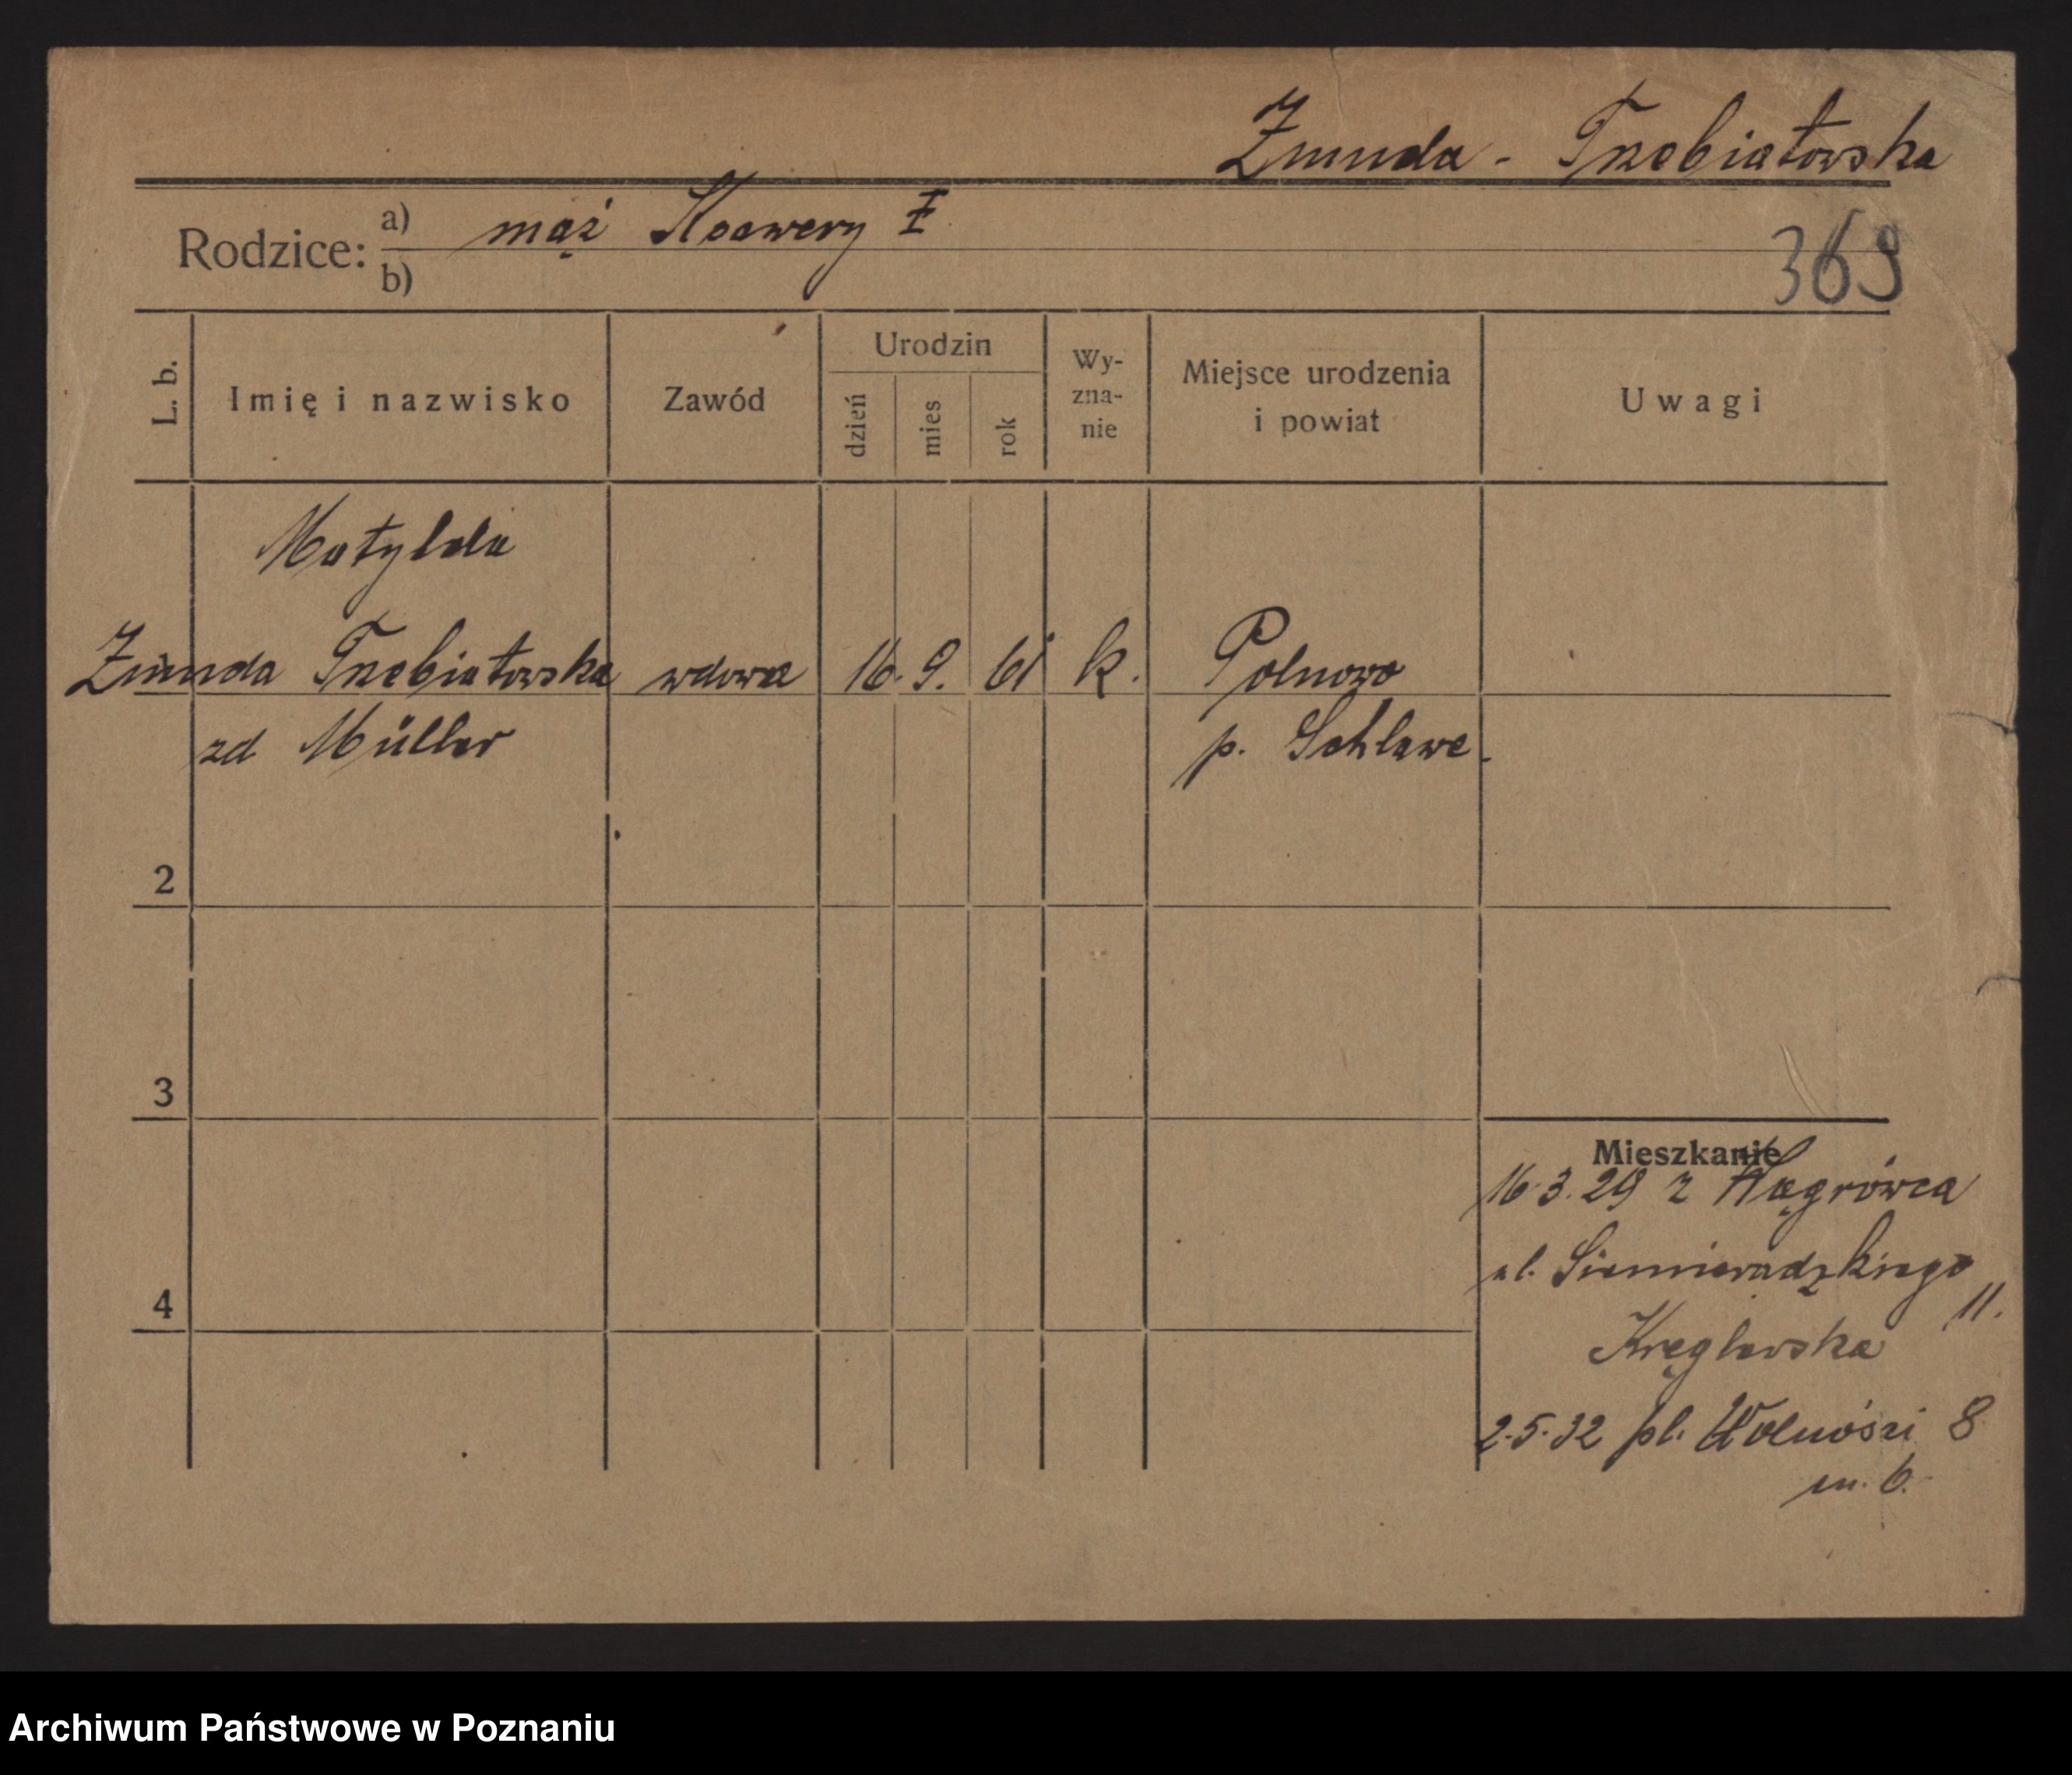 Żmuda - Trzebiatowska
Rodzice: a) mąż Ksawery Ż
b)
369
L. b.
Imię i nazwisko
Zawód
Urodzin
dzień
mies
rok
Wy-
zna-
nie
Miejsce urodzenia
i powiat
Uwagi
Matylda
Żmuda Trzebiatowska wdowa 16. 9. 61 k. Polnowo
zd Müller p. Schlawe.
2
3
4
Mieszkanie
16.3.29 z Wągrówca
ul. Siemieradzkiego
11.
Kręglewska
2.5.32 pl. Wolności 8
m. 6.
Archiwum Państwowe w Poznaniu